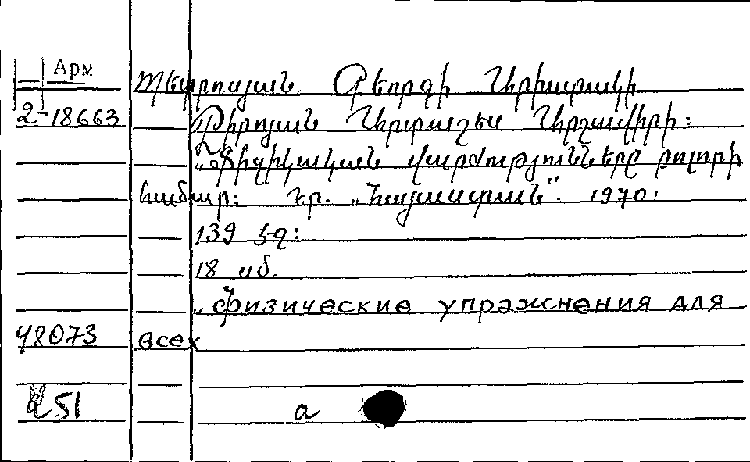 Арм
Պետրոսյան Գեորգի Արիստակի
2-18663 Թիրոյան Արտաշես Արշավիրի:
„Ֆիզիկական վարժությունները բոլորի
համար: Եր. „Հայաստան". 1970.
139 էջ:
18 սմ.
„Физические упражнения для
48073 всех
251 а